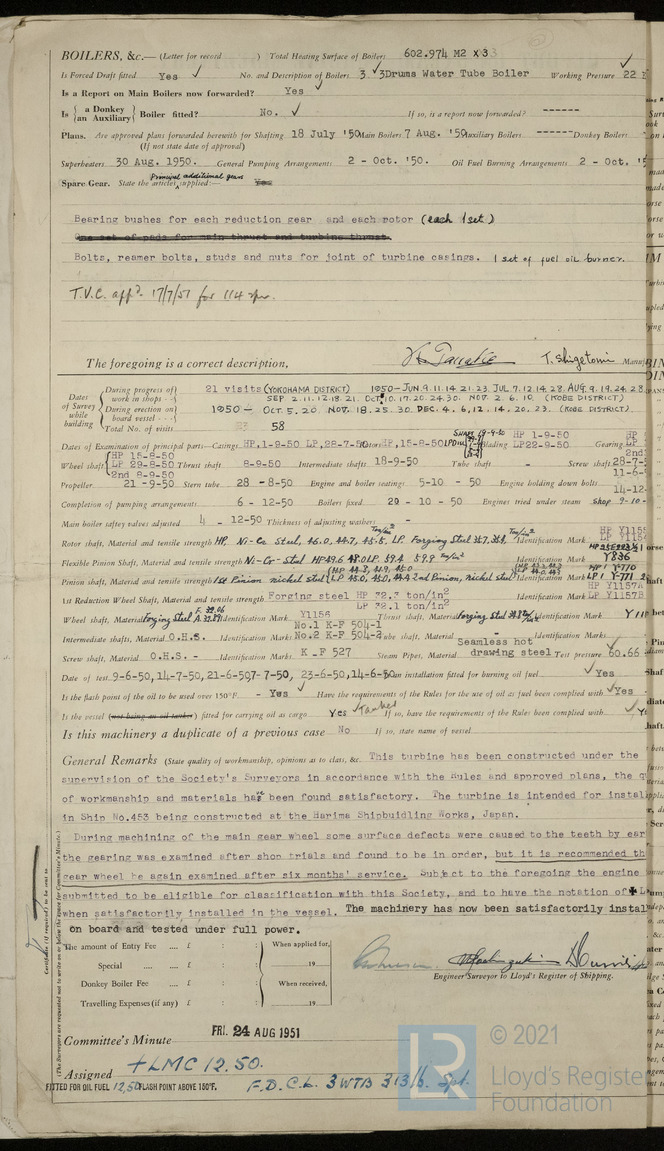 BOILERS, &c.— (Letter for record ) Total Heating Surface of Boilers 602.974 M2 x 3
Is Forced Draft fitted Yes ✓ No. and Description of Boilers 3 ✓ 3Drums Water Tube Boiler Working Pressure 22
Is a Report on Main Boilers now forwarded? Yes
Is { a Donkey / an Auxiliary } Boiler fitted? No. ✓ If so, is a report now forwarded? ------
Plans. Are approved plans forwarded herewith for Shafting 18 July '50 Main Boilers 7 Aug. '50 Auxiliary Boilers ------ Donkey Boilers
(If not state date of approval)
Superheaters 30 Aug. 1950. General Pumping Arrangements 2 - Oct. '50. Oil Fuel Burning Arrangements 2 - Oct. '5
Principal additional gears
Spare Gear. State the articles supplied:— Yes
Bearing bushes for each reduction gear and each rotor (each 1 set)
One set of pads for main thrust and turbine thrust.
Bolts, reamer bolts, studs and nuts for joint of turbine casings. 1 set of fuel oil burner.
T.V.C. appd. 17/7/51 for 114 rpm.
The foregoing is a correct description, T. Shigetomi Manuf
Dates of Survey while building
During progress of work in shops - - 21 visits (YOKOHAMA DISTRICT) 1950-JUN. 9. 11. 14. 21. 23. JUL 7. 12. 14. 28. AUG. 9. 19. 24. 28.
SEP 2. 11. 12. 18. 21. OCT. 10. 17. 20. 24. 30. NOV. 2. 6. 10. (KOBE DISTRICT)
During erection on board vessel - - - 1950 — OCT. 5. 20. NOV. 18. 25. 30. DEC. 4. 6, 12. 14. 20. 23. (KOBE DISTRICT)
Total No. of visits 58
Dates of Examination of principal parts—Casings HP,1-9-50 LP,28-7-50 Rotors HP,15-8-50 LP Blading HP 1-9-50 LP22-9-50 Gearing
Wheel shaft { HP 15-8-50 LP 29-8-50 2nd 8-9-50 Thrust shaft 8-9-50 Intermediate shafts 18-9-50 Tube shaft - Screw shaft 28-7-
11-6-
Propeller 21 -9-50 Stern tube 28 -8-50 Engine and boiler seatings 5-10 - 50 Engine holding down bolts 14-12-
Completion of pumping arrangements 6 - 12-50 Boilers fixed 20 - 10 - 50 Engines tried under steam Shop 9-10-
Main boiler safety valves adjusted 4 - 12-50 Thickness of adjusting washers -
Rotor shaft, Material and tensile strength HP, Ni-Co Steel, 46.0, 44.7, 45.5, LP. Forging Steel Ton/in² Identification Mark HP Y1155
Flexible Pinion Shaft, Material and tensile strength Ni-Cr-Steel Ton/in² Identification Mark Y836
Pinion shaft, Material and tensile strength 1st Pinion nickel Steel 2nd Pinion, nickel steel Identification Mark HP 1 Y-770 LP 1 Y-771
1st Reduction Wheel Shaft, Material and tensile strength Forging steel HP 32.3 ton/in² LP 32.1 ton/in² Identification Mark HP Y1157A LP Y1157B
Wheel shaft, Material Forging Steel Identification Mark Y1156 Thrust shaft, Material Forging Steel Identification Mark Y11
Intermediate shafts, Material O.H.S. Identification Marks No.1 K-F 504-1 No.2 K-F 504-2 Tube shaft, Material - Identification Marks
Screw shaft, Material O.H.S. - Identification Marks K .F 527 Steam Pipes, Material Seamless hot drawing steel Test pressure 60.66
Date of test 9-6-50,14-7-50,21-6-50,7-7-50, 23-6-50,14-6-50 an installation fitted for burning oil fuel ✓ Yes
Is the flash point of the oil to be used over 150°F. - Yes ✓ Have the requirements of the Rules for the use of oil as fuel been complied with ✓ Yes
Is the vessel (not being an oil tanker) fitted for carrying oil as cargo Yes Tanker If so, have the requirements of the Rules been complied with ✓ Y
Is this machinery a duplicate of a previous case No If so, state name of vessel
General Remarks (State quality of workmanship, opinions as to class, &c. This turbine has been constructed under the
supervision of the Society's Surveyors in accordance with the Rules and approved plans, the q
of workmanship and materials has been found satisfactory. The turbine is intended for instal
in Ship No.453 being constructed at the Harima Shipbuidling Works, Japan.
During machining of the main gear wheel some surface defects were caused to the teeth by ear
the gearing was examined after shop trials and found to be in order, but it is recommended th
gear wheel be again examined after six months' service. Subject to the foregoing the engine
submitted to be eligible for classification with this Society, and to have the notation of ✠ L
when satisfactorily installed in the vessel. The machinery has now been satisfactorily instal
on board and tested under full power.
The amount of Entry Fee .... £ : : When applied for,
Special .... .... £ : : 19
Donkey Boiler Fee .... £ : : When received,
Travelling Expenses (if any) £ : : 19
Engineer Surveyor to Lloyd's Register of Shipping.
Committee's Minute FRI. 24 AUG 1951
Assigned + LMC 12.50.
FITTED FOR OIL FUEL 12,50 FLASH POINT ABOVE 150°F. F.D. C.L. 3 WTB 313 lb. Spt.
(The Surveyors are requested not to write on or below the space for Committee's Minute.)
Certificate (if required) to be sent to
LR
© 2021
Lloyd's Register
Foundation